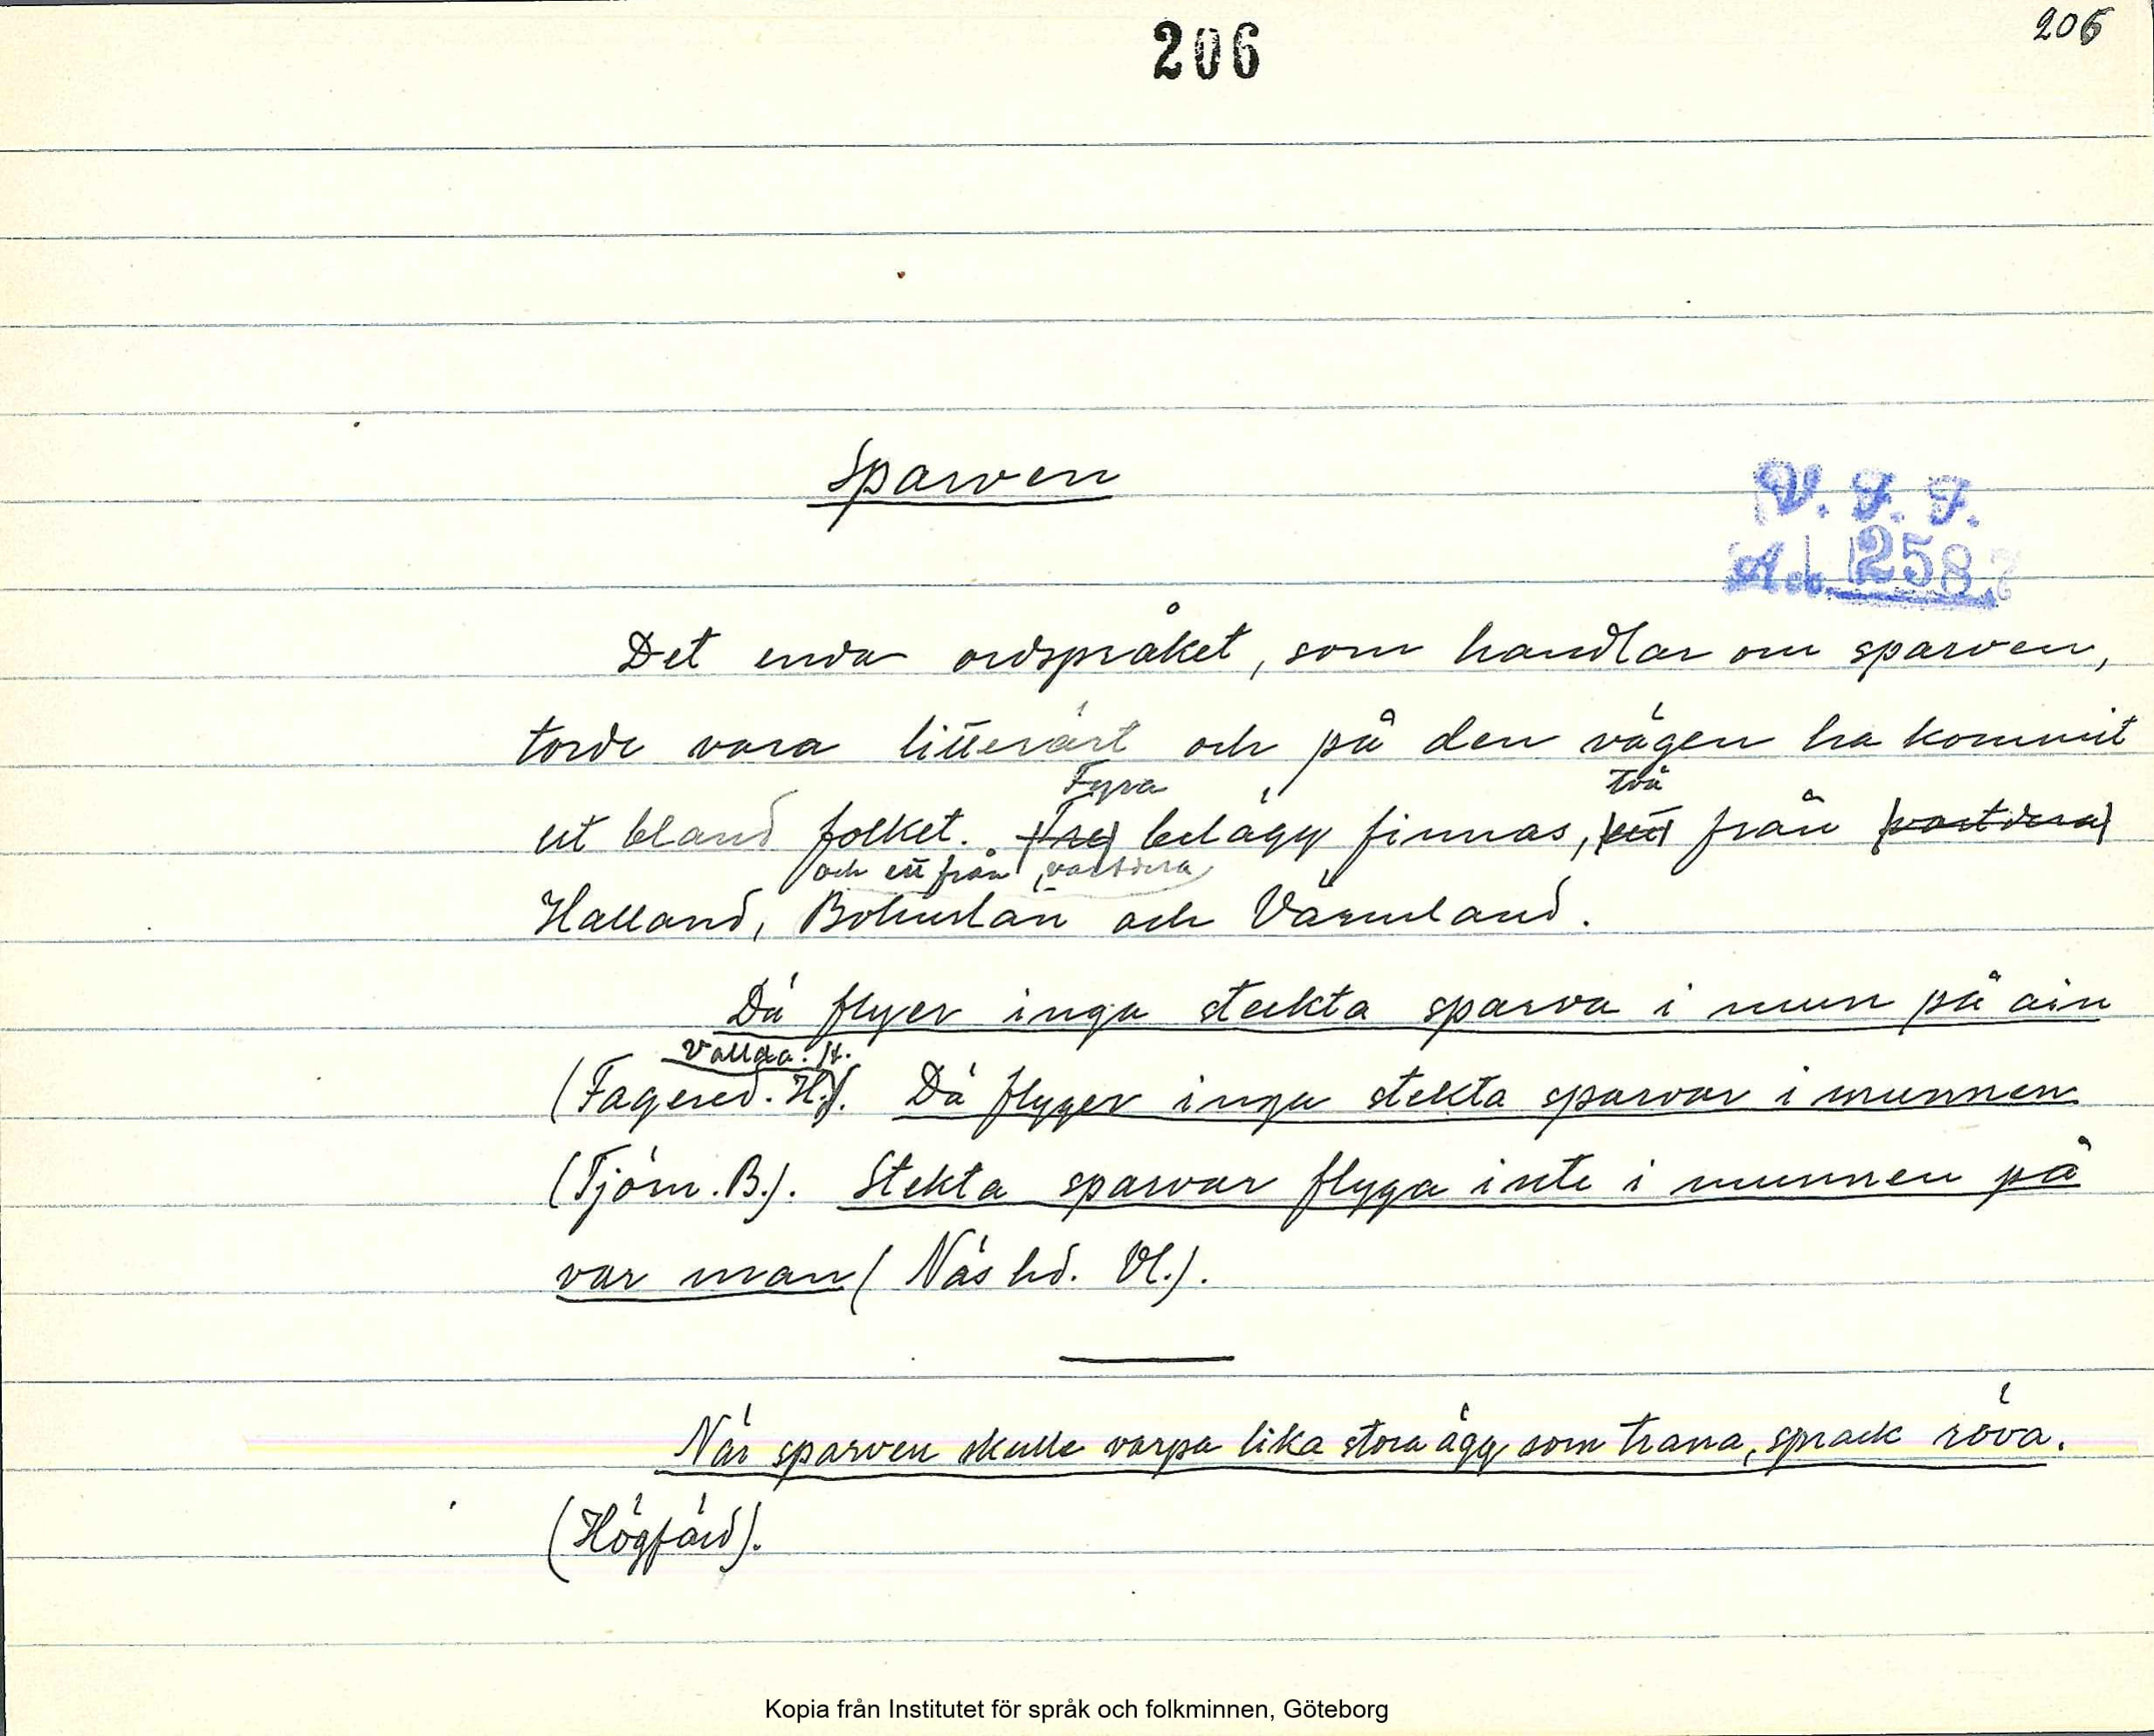 206
206
Sparven
V. F. F.
Acc. 2587
Det enda ordspråket, som handlar om sparven,
torde vara litterärt och på den vägen ha kommit
Fyra två
ut bland folket. (Tre) belägg finnas, (ett) från (vartdera)
och ett från vartdera
Halland, Bohuslän och Värmland.
Dä flyer inga stekta sparva i mun på ain
Vallda. H.
(Fagered. H.). Dä flyger inga stekta sparvar i munnen
(Tjörn. B.). Stekta sparvar flyga inte i munnen på
var man (Näs hd. Vl.).
När sparven skulle värpa lika stora ägg som trana, sprack röva.
(Högfärd).
Kopia från Institutet för språk och folkminnen, Göteborg